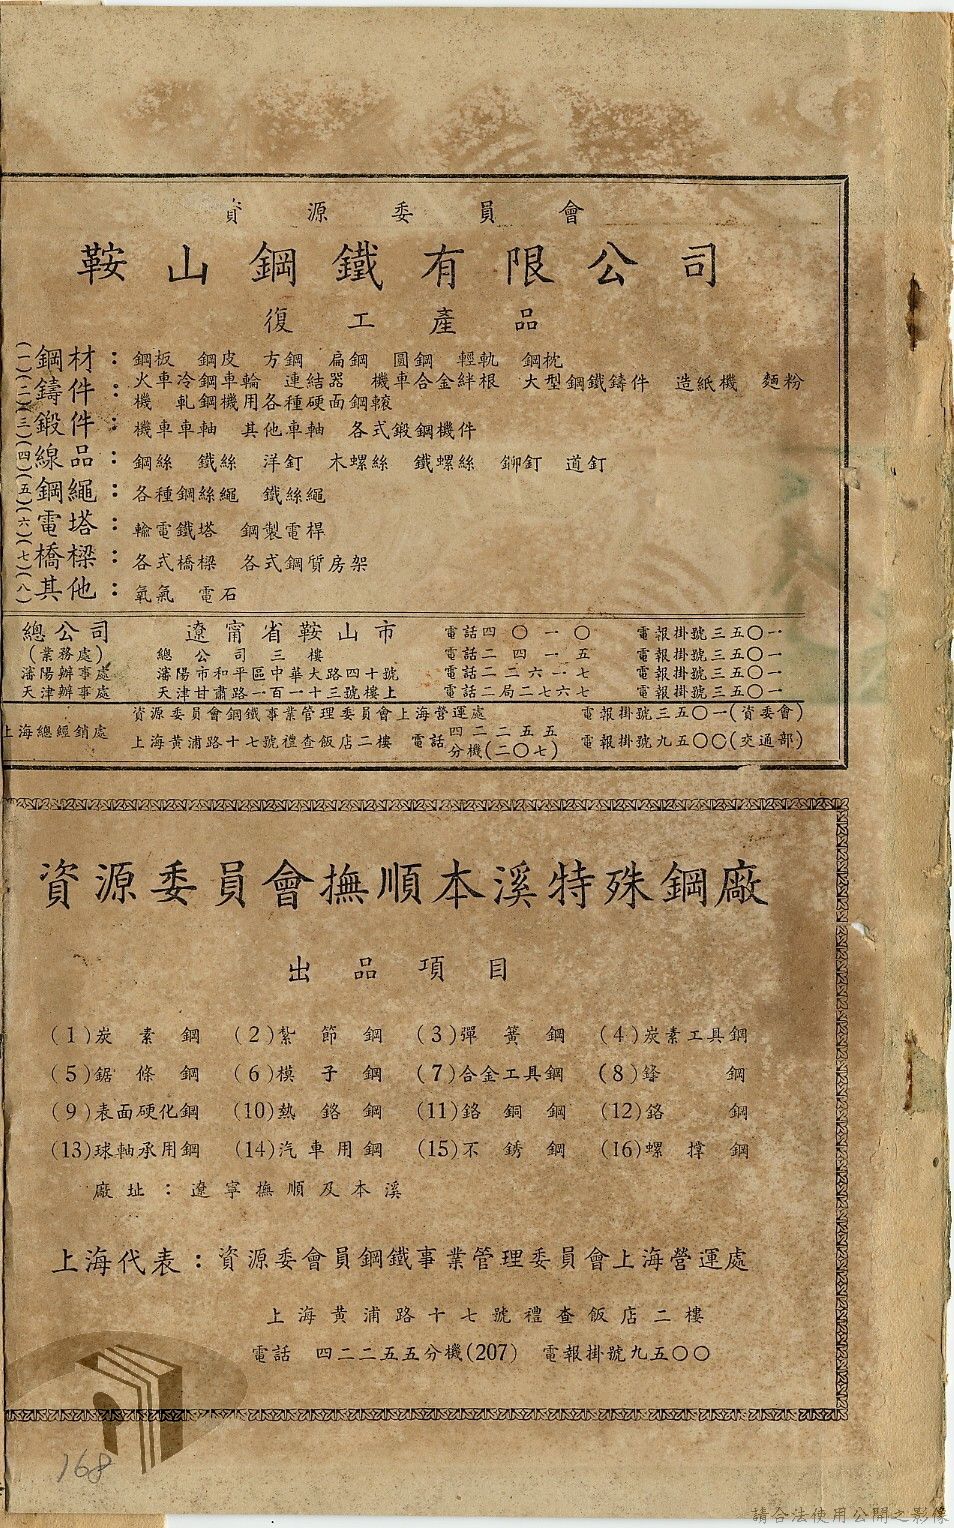 資源委員會
鞍山鋼鐵有限公司
復工產品
(一)鋼材：鋼板 鋼皮 方鋼 扁鋼 圓鋼 輕軌 鋼枕
(二)鑄件：火車冷鋼車輪 連結器 機車合金絆根 大型鋼鐵鑄件 造紙機 麵粉
機 軋鋼機用各種硬面鋼輥
(三)鍛件：機車車軸 其他車軸 各式鍛鋼機件
(四)線品：鋼絲 鐵絲 洋釘 木螺絲 鐵螺絲 鉚釘 道釘
(五)鋼繩：各種鋼絲繩 鐵絲繩
(六)電塔：輸電鐵塔 鋼製電桿
(七)橋樑：各式橋樑 各式鋼質房架
(八)其他：氧氣 電石
總公司 遼甯省鞍山市 電話四〇一〇 電報掛號三五〇一
(業務處) 總公司三樓 電話二四一五 電報掛號三五〇一
瀋陽辦事處 瀋陽市和平區中華大路四十號 電話二二六一七 電報掛號三五〇一
天津辦事處 天津甘肅路一百一十三號樓上 電話二局二七六七 電報掛號三五〇一
資源委員會鋼鐵事業管理委員會上海營運處 電報掛號三五〇一(資委會)
上海總經銷處 上海黃浦路十七號禮查飯店二樓 電話四二二五五 分機(二〇七) 電報掛號九五〇〇(交通部)
資源委員會撫順本溪特殊鋼廠
出品項目
(1)炭素鋼 (2)紮節鋼 (3)彈簧鋼 (4)炭素工具鋼
(5)鋸條鋼 (6)模子鋼 (7)合金工具鋼 (8)鋒鋼
(9)表面硬化鋼 (10)熱鉻鋼 (11)鉻鋼鋼 (12)鉻鋼
(13)球軸承用鋼 (14)汽車用鋼 (15)不銹鋼 (16)螺撑鋼
廠址：遼寧撫順及本溪
上海代表：資源委會員鋼鐵事業管理委員會上海營運處
上海黃浦路十七號禮查飯店二樓
電話 四二二五五分機(207) 電報掛號九五〇〇
168
請合法使用公開之影像